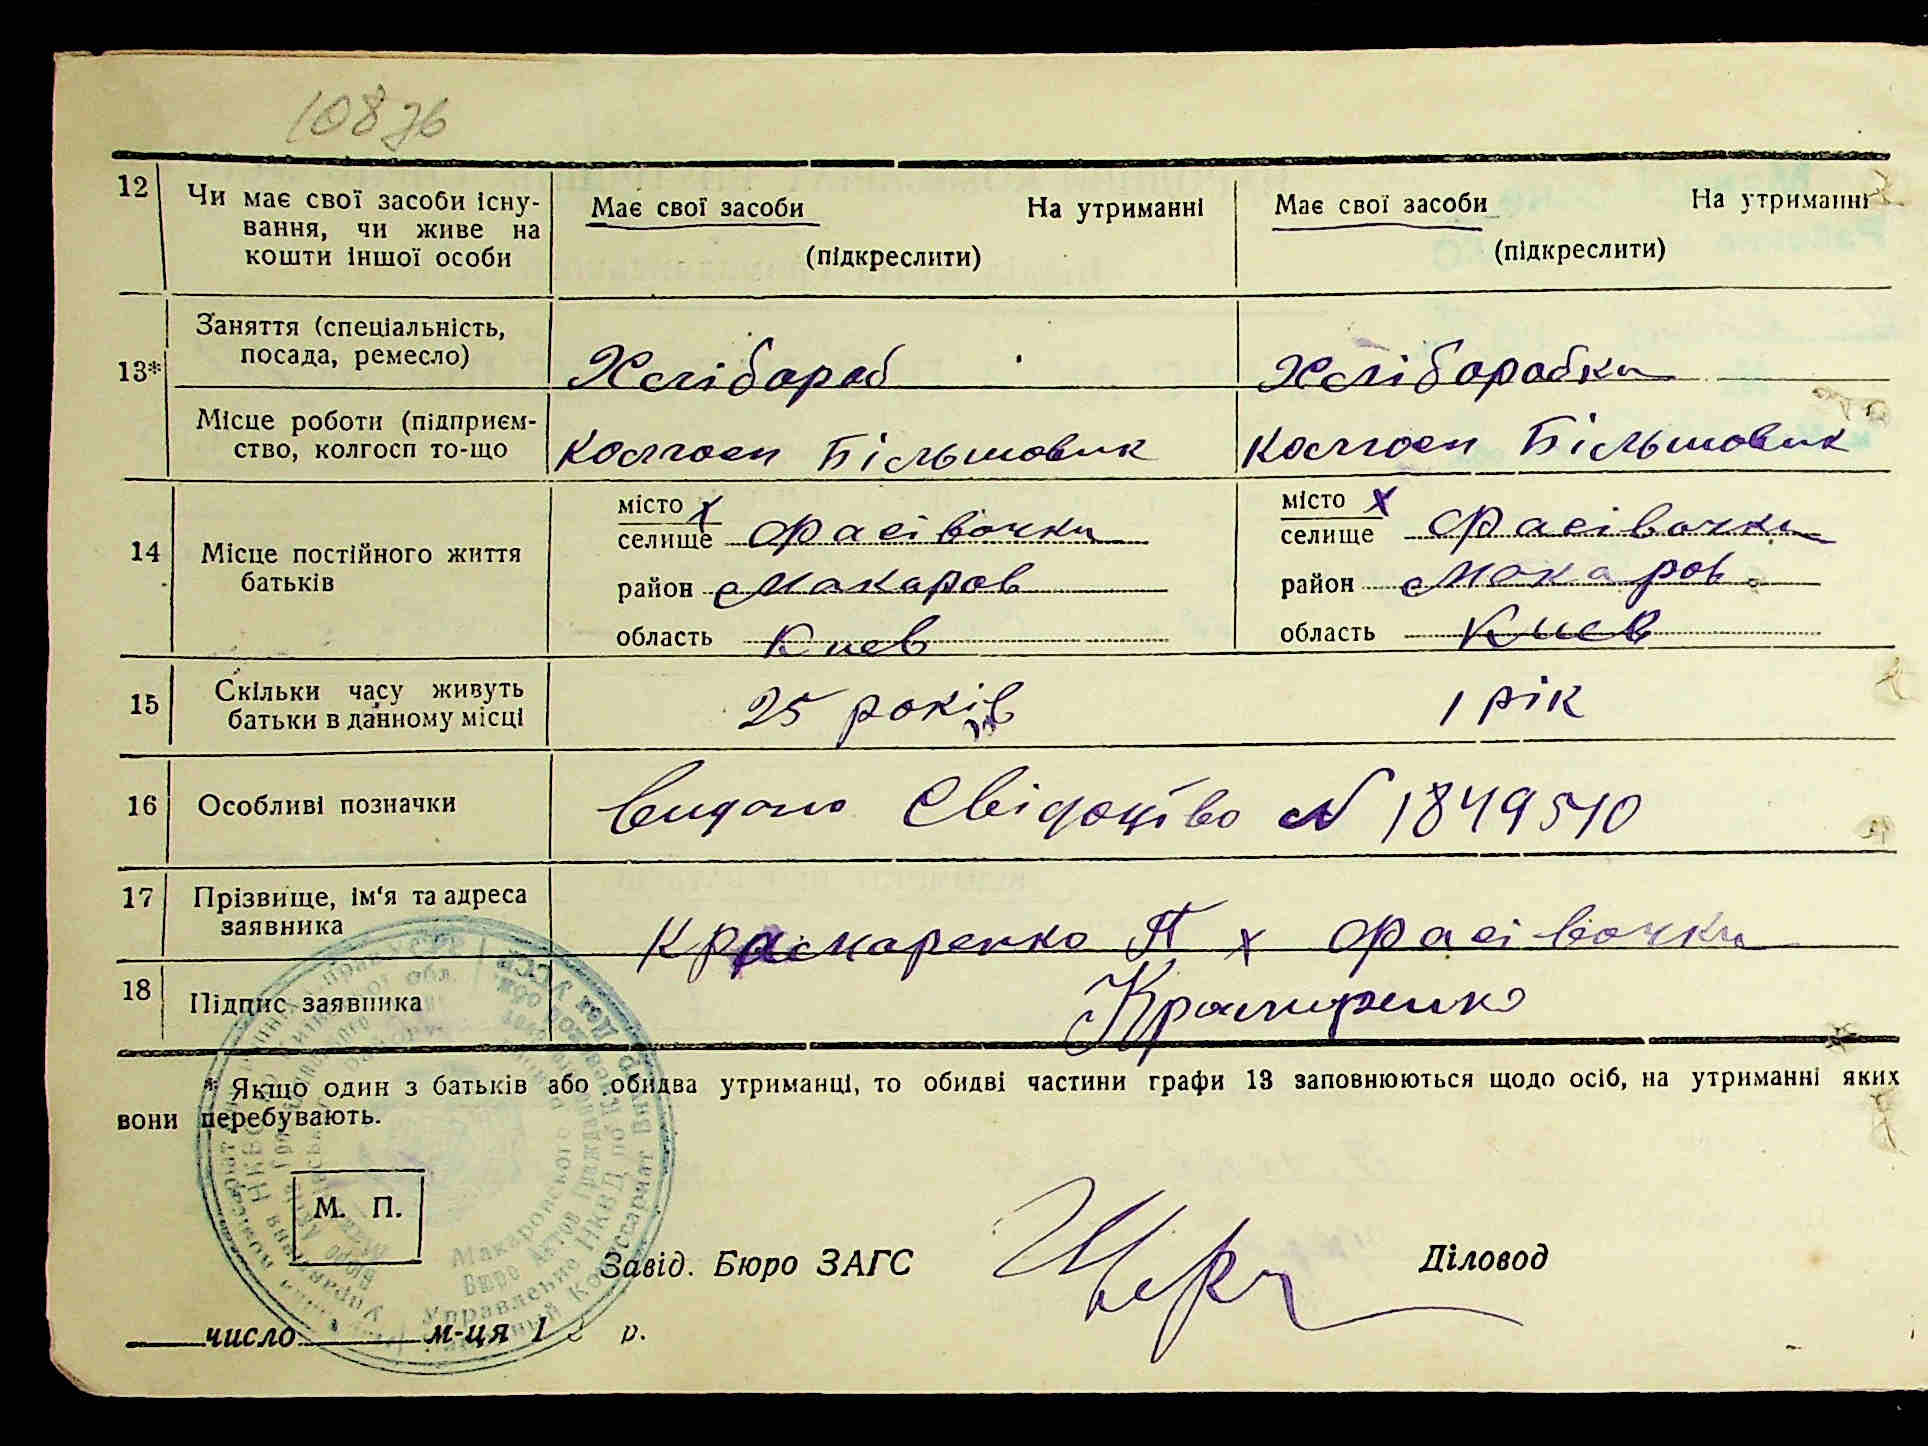 108 зв
12 Чи має свої засоби існу-
вання, чи живе на
кошти іншої особи
Має свої засоби На утриманні
(підкреслити)
Має свої засоби На утриманні
(підкреслити)
13* Заняття (спеціальність,
посада, ремесло)
Хлібороб
Хлібаробка
Місце роботи (підприєм-
ство, колгосп то-що
Колгосп Більшовик
Колгосп Більшовик
14 Місце постійного життя
батьків
місто х
селище Фасівочка
район Макаров
область Киев
місто х
селище Фасівочка
район Макаров
область Киев
15 Скільки часу живуть
батьки в данному місці
25 років
1 рік
16 Особливі позначки
Видано Свідоцтво N 1849540
17 Прізвище, ім'я та адреса
заявника
Крамаренко П х Фасівочка
18 Підпис заявника
Крамаренко
* Якщо один з батьків або обидва утриманці, то обидві частини графи 13 заповнюються щодо осіб, на утриманні яких
вони перебувають.
М. П.
Завід. Бюро ЗАГС
Діловод
число м-ця 1 р.
Макаровского
Бюро Актов Гражданск
Управление НКВД по